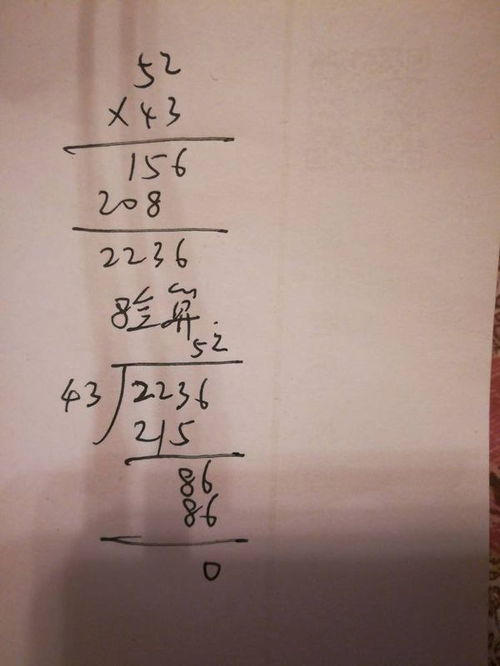 52
×43
156
208
2236
验算
52
43 2236
215
86
86
0